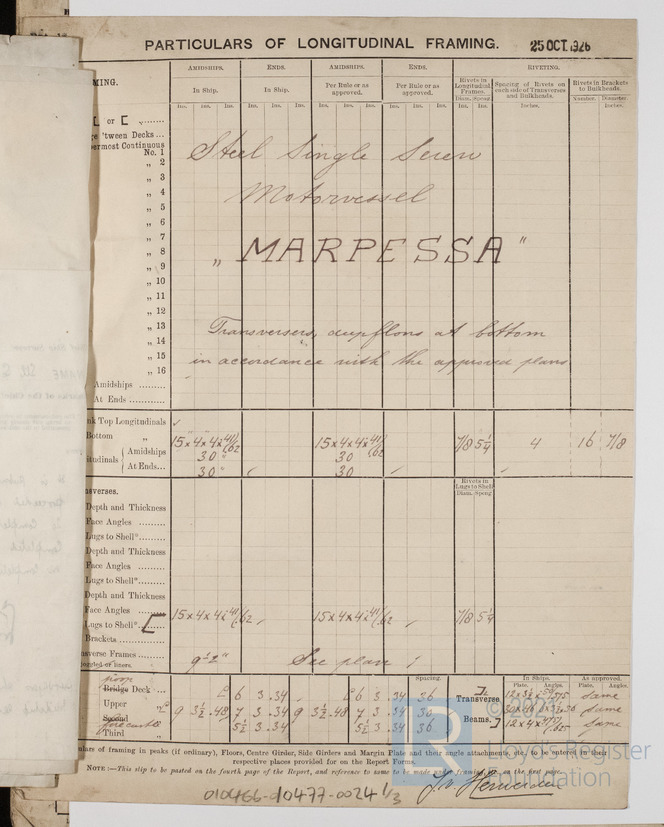 PARTICULARS OF LONGITUDINAL FRAMING. 25 OCT. 1926
AMIDSHIPS. ENDS. AMIDSHIPS. ENDS. RIVETING.
In Ship. In Ship. Per Rule or as approved. Per Rule or as approved. Rivets in Longitudinal Frames. Spacing of Rivets on each side of Transverses and Bulkheads. Rivets in Brackets to Bulkheads.
Ins. Ins. Ins. Ins. Ins. Ins. Ins. Ins. Ins. Ins. Ins. Ins. Diam. Speng Ins. Ins. Inches. Number. Diameter Inches.
MING.
or
'tween Decks ...
ermost Continuous
No. 1
Steel Single Screw
„ 2
„ 3
„ 4
Motorvessel
„ 5
„ 6
„ 7
„ 8
„ MARPESSA "
„ 9
„ 10
„ 11
„ 12
„ 13
Transverses, deepfloors at bottom
„ 14
„ 15
in accordance with the approved plans
„ 16
Amidships
At Ends
nk Top Longitudinals
Bottom „ 15 x 4 x 4 x 41/.62 15 x 4 x 4 x 41/.62 7/8 5 1/4 4 16 7/8
itudinals Amidships 30 " 30
At Ends... 30 " 30
nsverses. Rivets in Lugs to Shell Diam. Speng
Depth and Thickness
Face Angles
Lugs to Shell*
Depth and Thickness
Face Angles
Lugs to Shell*
Depth and Thickness
Face Angles
Lugs to Shell* 15 x 4 x 4 x 41/.62 15 x 4 x 4 x 41/.62 7/8 5 1/4
Brackets
sverse Frames 9'-2" See plan
joggled or liners.
Spacing. In Ships. As approved.
Plate. Angles. Plate. Angles.
poop
Bridge Deck ... 6 3 .34 6 3 .34 36 Same
Upper „ 9 3 1/2 .48 7 3 .34 9 3 1/2 .48 7 3 .34 30 Transverse Beams. Same
forecastle
Second „ 5 1/2 3 .34 5 1/2 3 .34 36 Same
Third „
ulars of framing in peaks (if ordinary), Floors, Centre Girder, Side Girders and Margin Plate and their angle attachments, etc., to be entered in their
respective places provided for on the Report Forms.
NOTE :—This slip to be posted on the fourth page of the Report, and reference to same to be made under framing, on the first page.
010466-010477-0024 1/3
Lloyd's Register
Foundation